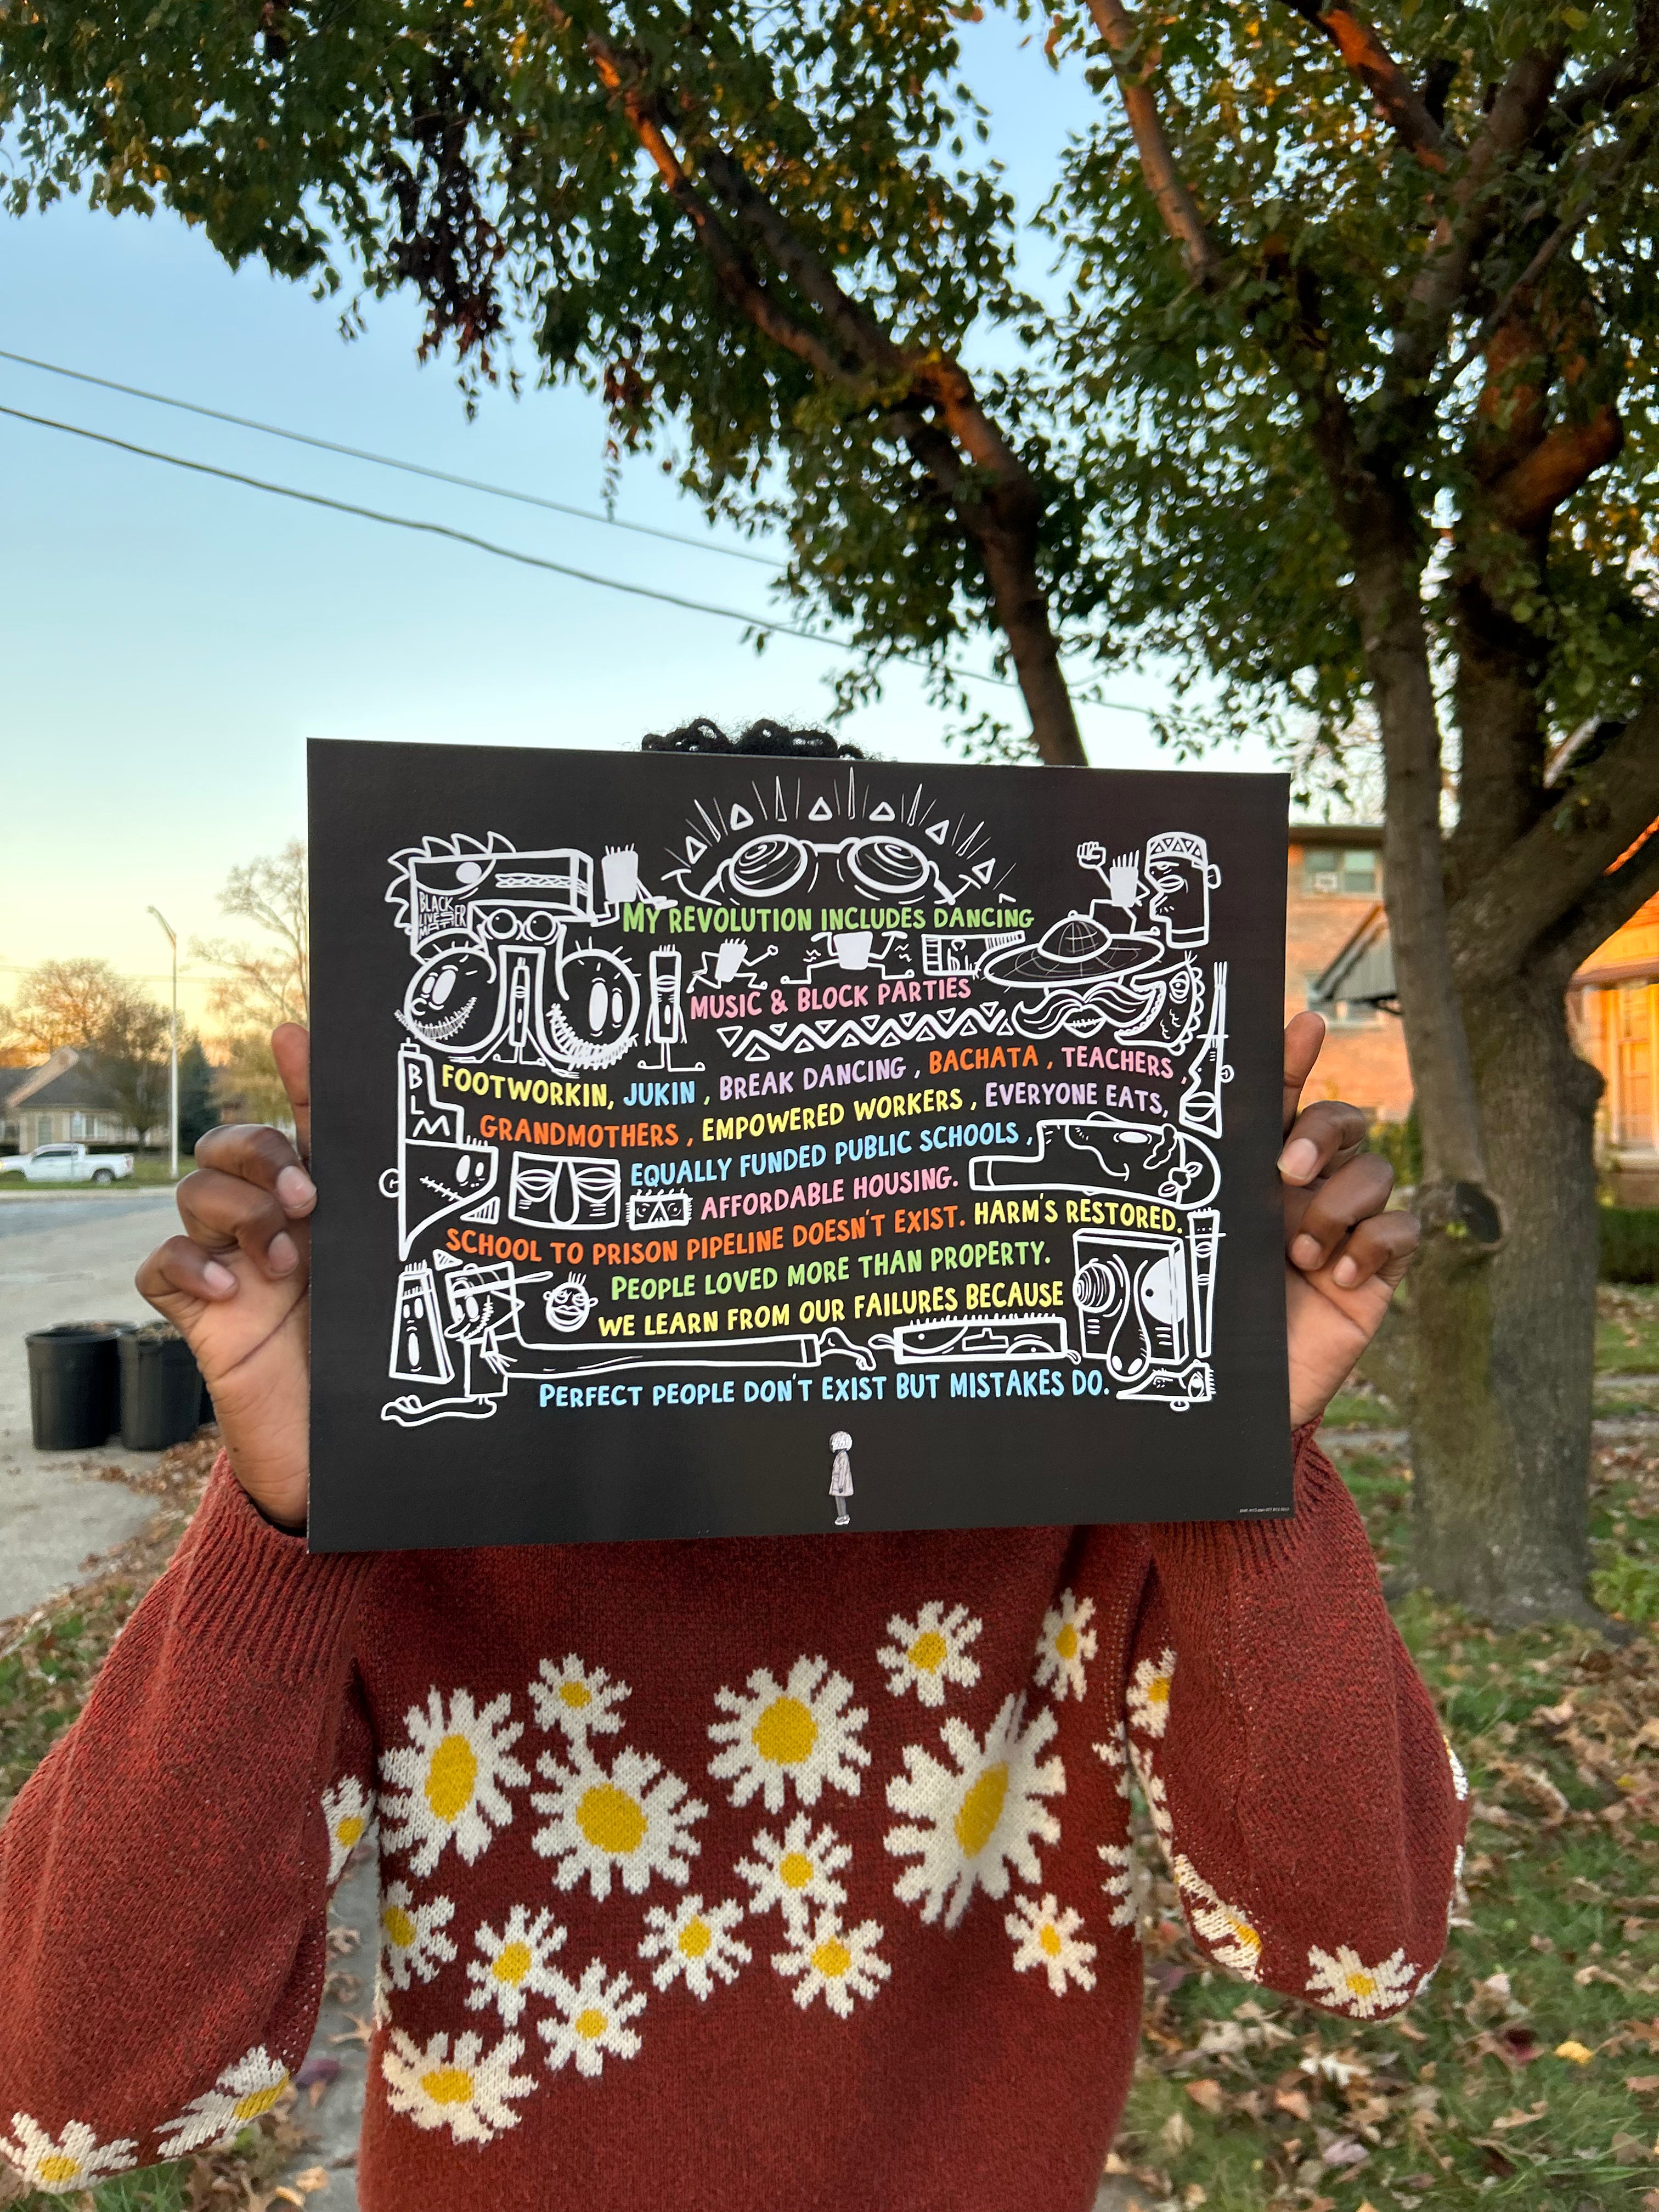 MY REVOLUTION INCLUDES DANCING
BLACK
LIVES
MATTER
MUSIC & BLOCK PARTIES
FOOTWORKIN, JUKIN, BREAK DANCING, BACHATA, TEACHERS,
BLM
GRANDMOTHERS, EMPOWERED WORKERS, EVERYONE EATS,
EQUALLY FUNDED PUBLIC SCHOOLS,
AFFORDABLE HOUSING.
SCHOOL TO PRISON PIPELINE DOESN'T EXIST. HARM'S RESTORED.
PEOPLE LOVED MORE THAN PROPERTY.
WE LEARN FROM OUR FAILURES BECAUSE
PERFECT PEOPLE DON'T EXIST BUT MISTAKES DO.